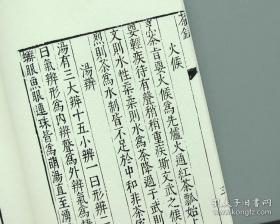 茶錄
火候
烹茶旨要火候爲先爐火通紅茶瓢始
要輕疾待有聲稍稍重疾斯文武之候
文則水性柔柔則水爲茶降過于武則
烈烈則茶爲水制皆不足於中和非茶
湯辨
湯有三大辨十五小辨一曰形辨
曰氣辨形爲內辨聲爲外辨氣爲
蟹眼魚眼連珠皆爲萌湯直至湧
孔夫子旧书网